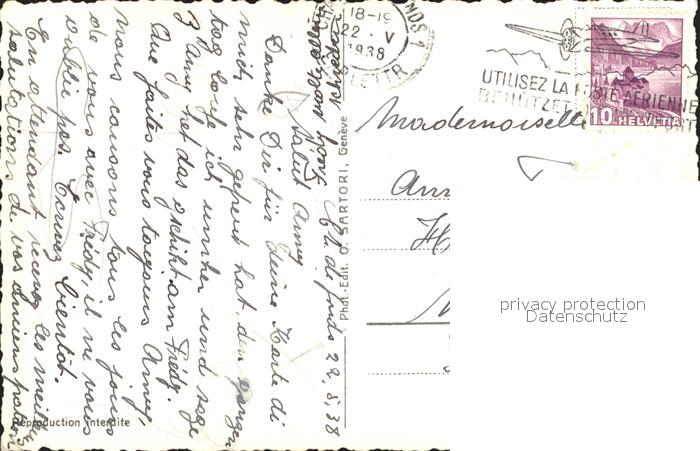 18-19
22 . V
1938
LETTR
UTILISEZ LA POSTE AERIENNE
BENUTZET
10 HELVETIA
Mademoiselle
privacy protection
Datenschutz
Phot.-Edit. O. SARTORI, Genève
Reproduction interdite
Ch. d. fonds 22.5.38
Salut Anny
Danke Dir für Deine Karte di
mich sehr gefreut hat, den ganzen
tag laufe ich umher und sage
Anny het das gschikt am Frédy.
Que faites vous toujours Anny
nous causons tous les jours
de vous avec Frédy, il ne vous
oublie pas. Ecrivez bientôt.
En attendant recevez les meille
salutations de vos